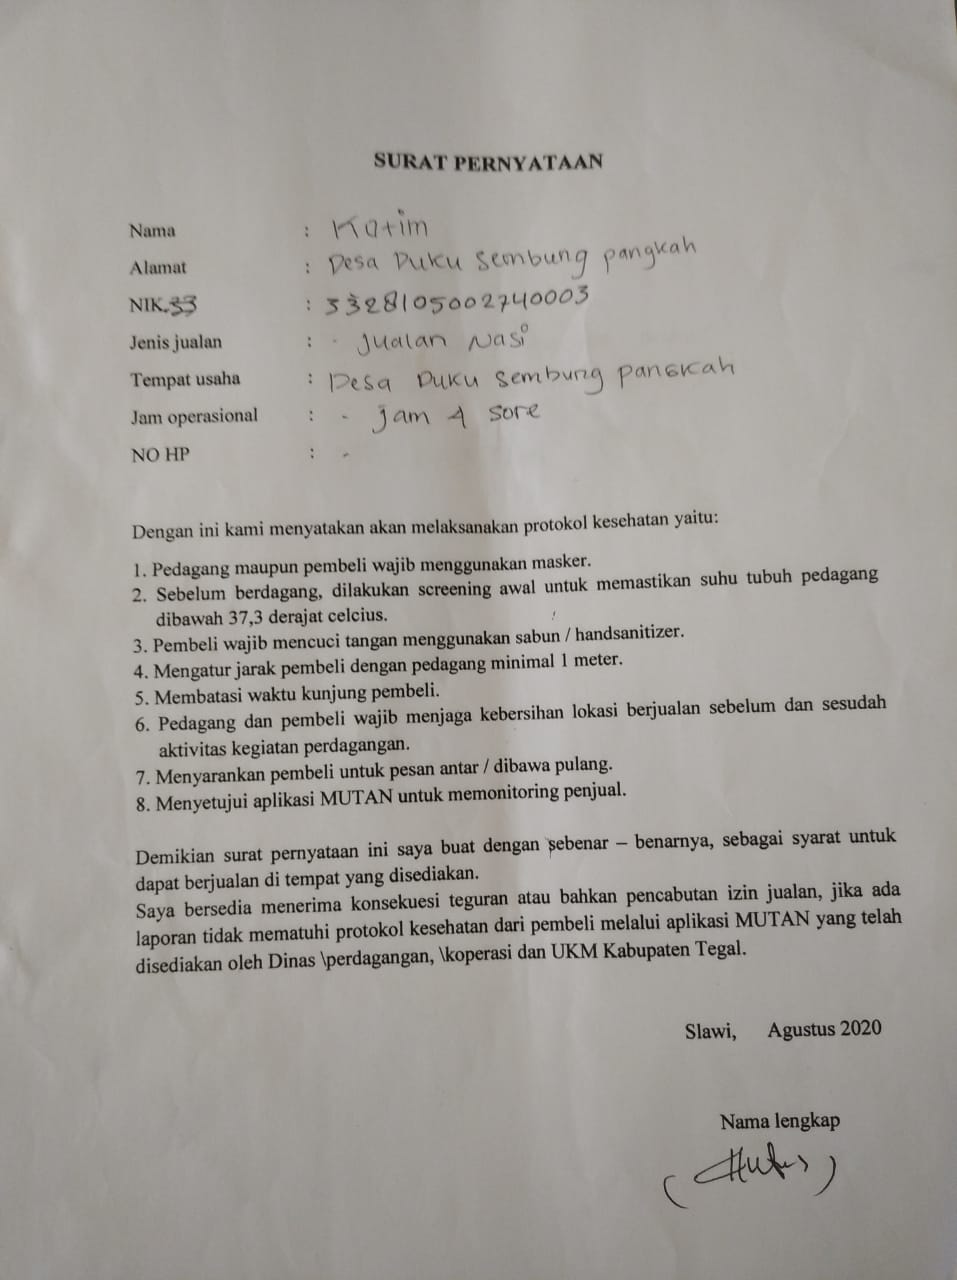 SURAT PERNYATAAN
Nama : Katim
Alamat : Desa Duku Sembung pangkah
NIK.33 : 3328105002740003
Jenis jualan : - Jualan Nasi
Tempat usaha : Desa Duku Sembung Pangkah
Jam operasional : - jam 4 sore
NO HP : -
Dengan ini kami menyatakan akan melaksanakan protokol kesehatan yaitu:
1. Pedagang maupun pembeli wajib menggunakan masker.
2. Sebelum berdagang, dilakukan screening awal untuk memastikan suhu tubuh pedagang
dibawah 37,3 derajat celcius.
3. Pembeli wajib mencuci tangan menggunakan sabun / handsanitizer.
4. Mengatur jarak pembeli dengan pedagang minimal 1 meter.
5. Membatasi waktu kunjung pembeli.
6. Pedagang dan pembeli wajib menjaga kebersihan lokasi berjualan sebelum dan sesudah
aktivitas kegiatan perdagangan.
7. Menyarankan pembeli untuk pesan antar / dibawa pulang.
8. Menyetujui aplikasi MUTAN untuk memonitoring penjual.
Demikian surat pernyataan ini saya buat dengan sebenar – benarnya, sebagai syarat untuk
dapat berjualan di tempat yang disediakan.
Saya bersedia menerima konsekuesi teguran atau bahkan pencabutan izin jualan, jika ada
laporan tidak mematuhi protokol kesehatan dari pembeli melalui aplikasi MUTAN yang telah
disediakan oleh Dinas \perdagangan, \koperasi dan UKM Kabupaten Tegal.
Slawi, Agustus 2020
Nama lengkap